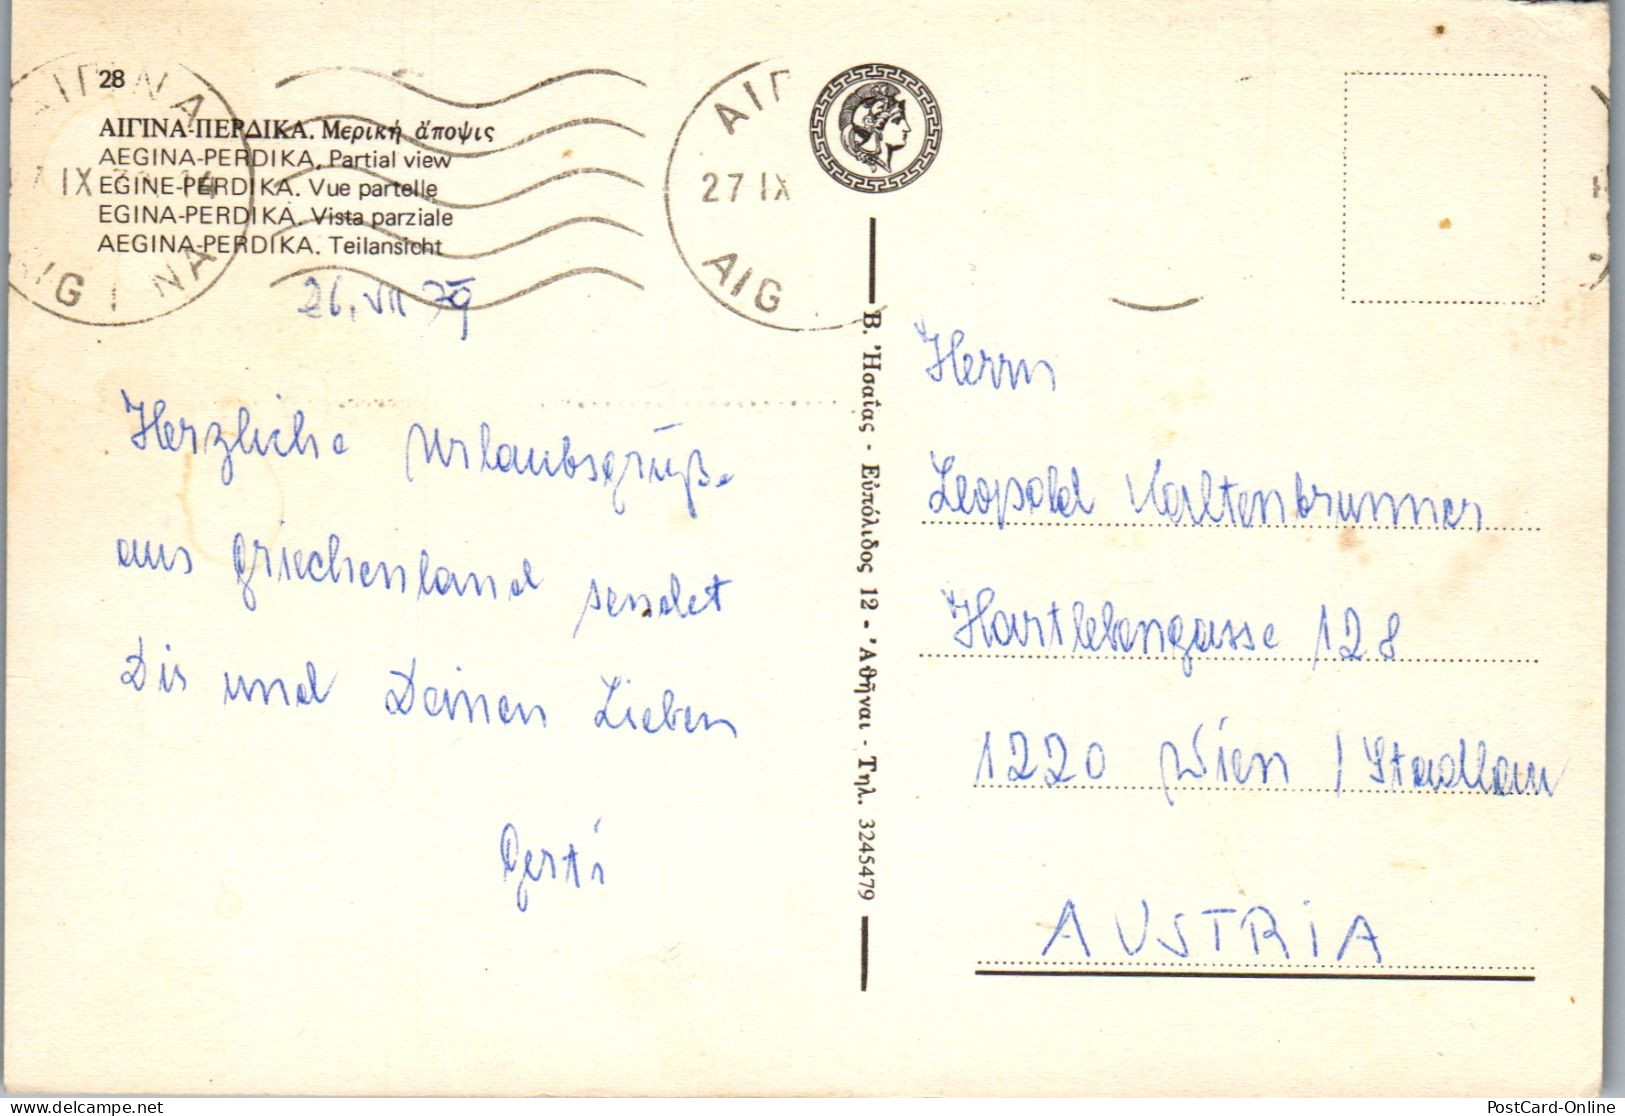 28
ΑΙΓΙΝΑ-ΠΕΡΔΙΚΑ. Μερική ἄποψις
AEGINA-PERDIKA, Partial view
EGINE-PERDIKA. Vue partelle
EGINA-PERDIKA. Vista parziale
AEGINA-PERDIKA. Teilansicht
ΑΙΓΙΝΑ
IX
AIGINA
ΑΙΓ
27 IX
AIG
26. VII 79
Herzliche Urlaubsgrüße
aus Griechenland sendet
Dir und Deinen Lieben
Gerti
Β. Ἠσαΐας - Εὐπόλιδος 12 - Ἀθῆναι - Τηλ. 3245479
Herrn
Leopold Kaltenbrunner
Hartlebengasse 128
1220 Wien / Stadlau
AUSTRIA
PostCard-Online